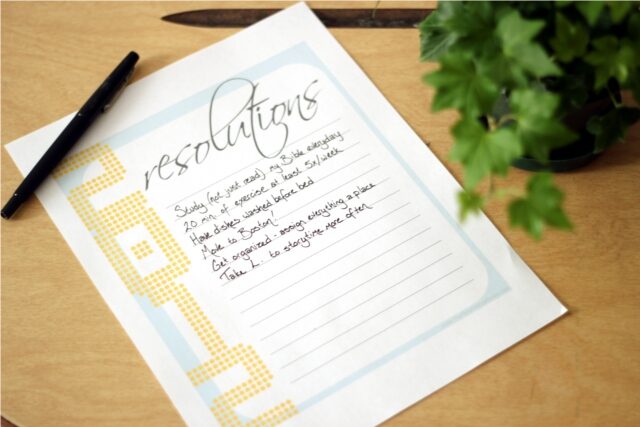 resolutions
Study (not just read) my Bible everyday
20 min. of exercise at least 5x/week
Have dishes washed before bed
Move to Boston!
Get organized: assign everything a place
Take L. to storytime more often